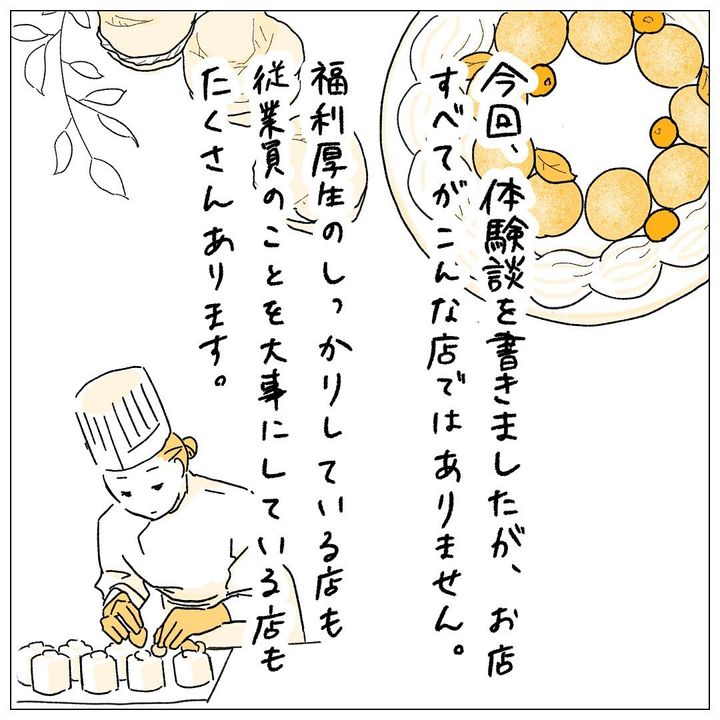 今回、体験談を書きましたが、お店
すべてがこんな店ではありません。
福利厚生のしっかりしている店も
従業員のことを大事にしている店も
たくさんあります。